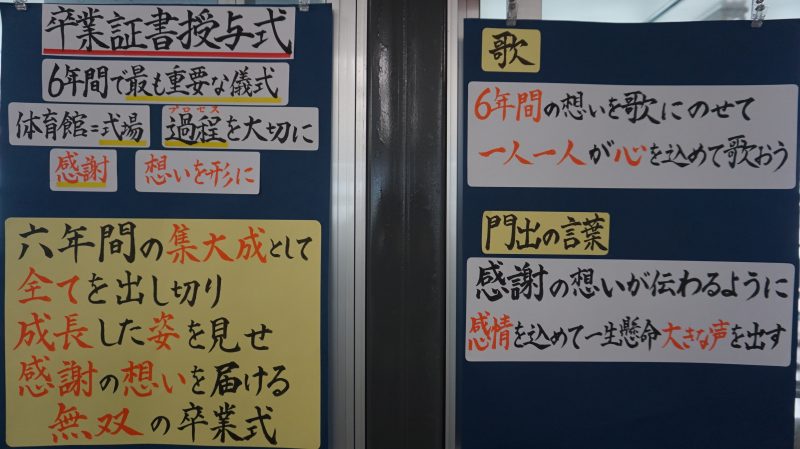 卒業証書授与式
6年間で最も重要な儀式
体育館=式場
プロセス
過程を大切に
感謝
想いを形に
六年間の集大成として
全てを出し切り
成長した姿を見せ
感謝の想いを届ける
無双の卒業式
歌
6年間の想いを歌にのせて
一人一人が心を込めて歌おう
門出の言葉
感謝の想いが伝わるように
感情を込めて一生懸命大きな声を出す